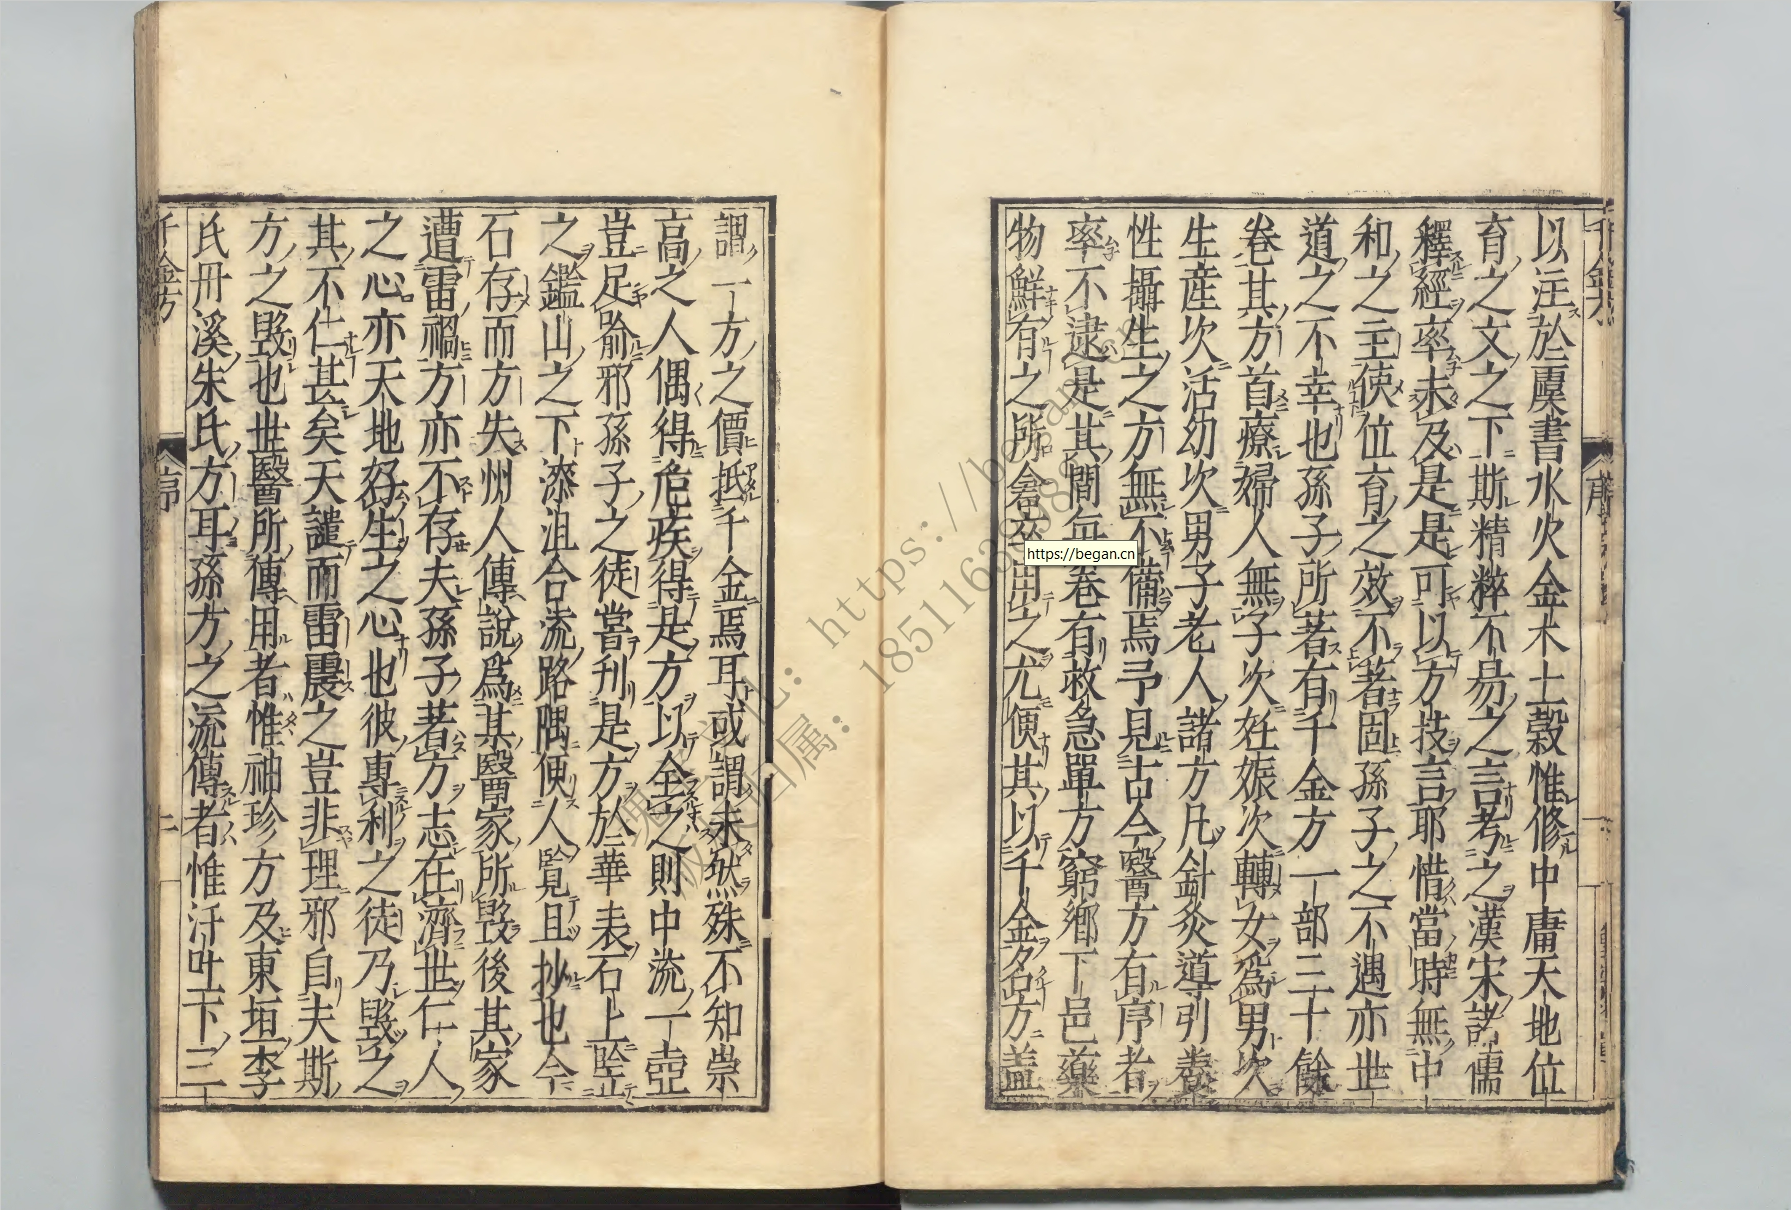 以注於虞書水火金木土穀惟修中庸天地位
育之文之下斯精粹不易之言考之漢宋諸儒
釋經率未及是是可以方技言耶惜當時無中
和之主使位育之效不著固孫子之不遇亦世
道之不幸也孫子所著有千金方一部三十餘
卷其方首療婦人無子次在娠次轉女為男次
生產次活幼次男子老人諸方凡針灸導引養
性攝生之方無不備焉予見古今醫方有序者
率不逮是其間每卷有救急單方窮鄉下邑藥
物鮮有之所倉卒出之尤便其以千金名方蓋
謂一方之價抵千金焉耳或謂未然殊不知崇
高之人偶得危疾得是方以全之則中流一壺
豈足喻邪孫子之徒嘗刊是方於華表石上竪
之鑑山之下漆沮合流路隅便人覽且抄也今
石存而方失州人傳說為其醫家所毀後其家
遭雷禍方亦不存夫孫子著方志在濟世仁人
之心亦天地好生之心也彼專利之徒乃毀之
其不仁甚矣天譴而雷震之豈非理邪自夫斯
方之毀也世醫所傳用者惟袖珍方及東垣李
氏丹溪朱氏方耳孫方之流傳者惟汗吐下三
千金方
序
二
https://began.cn